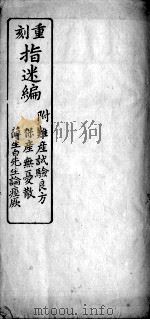 重刻
指迷編
附
難產試驗良方
保產無憂散
薛生白先生論厥